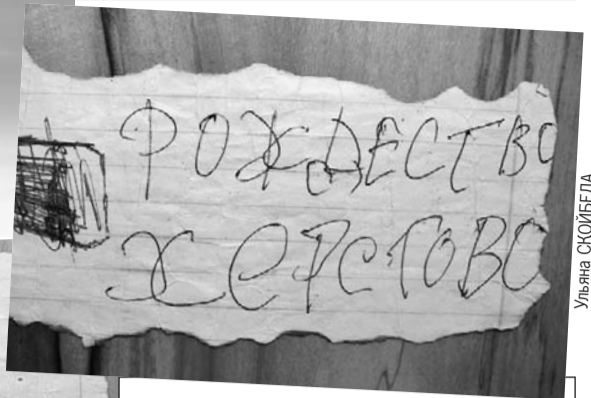 РОЖДЕСТВО
ХЕРСТОВО
Ульяна СКОЙБЕДА